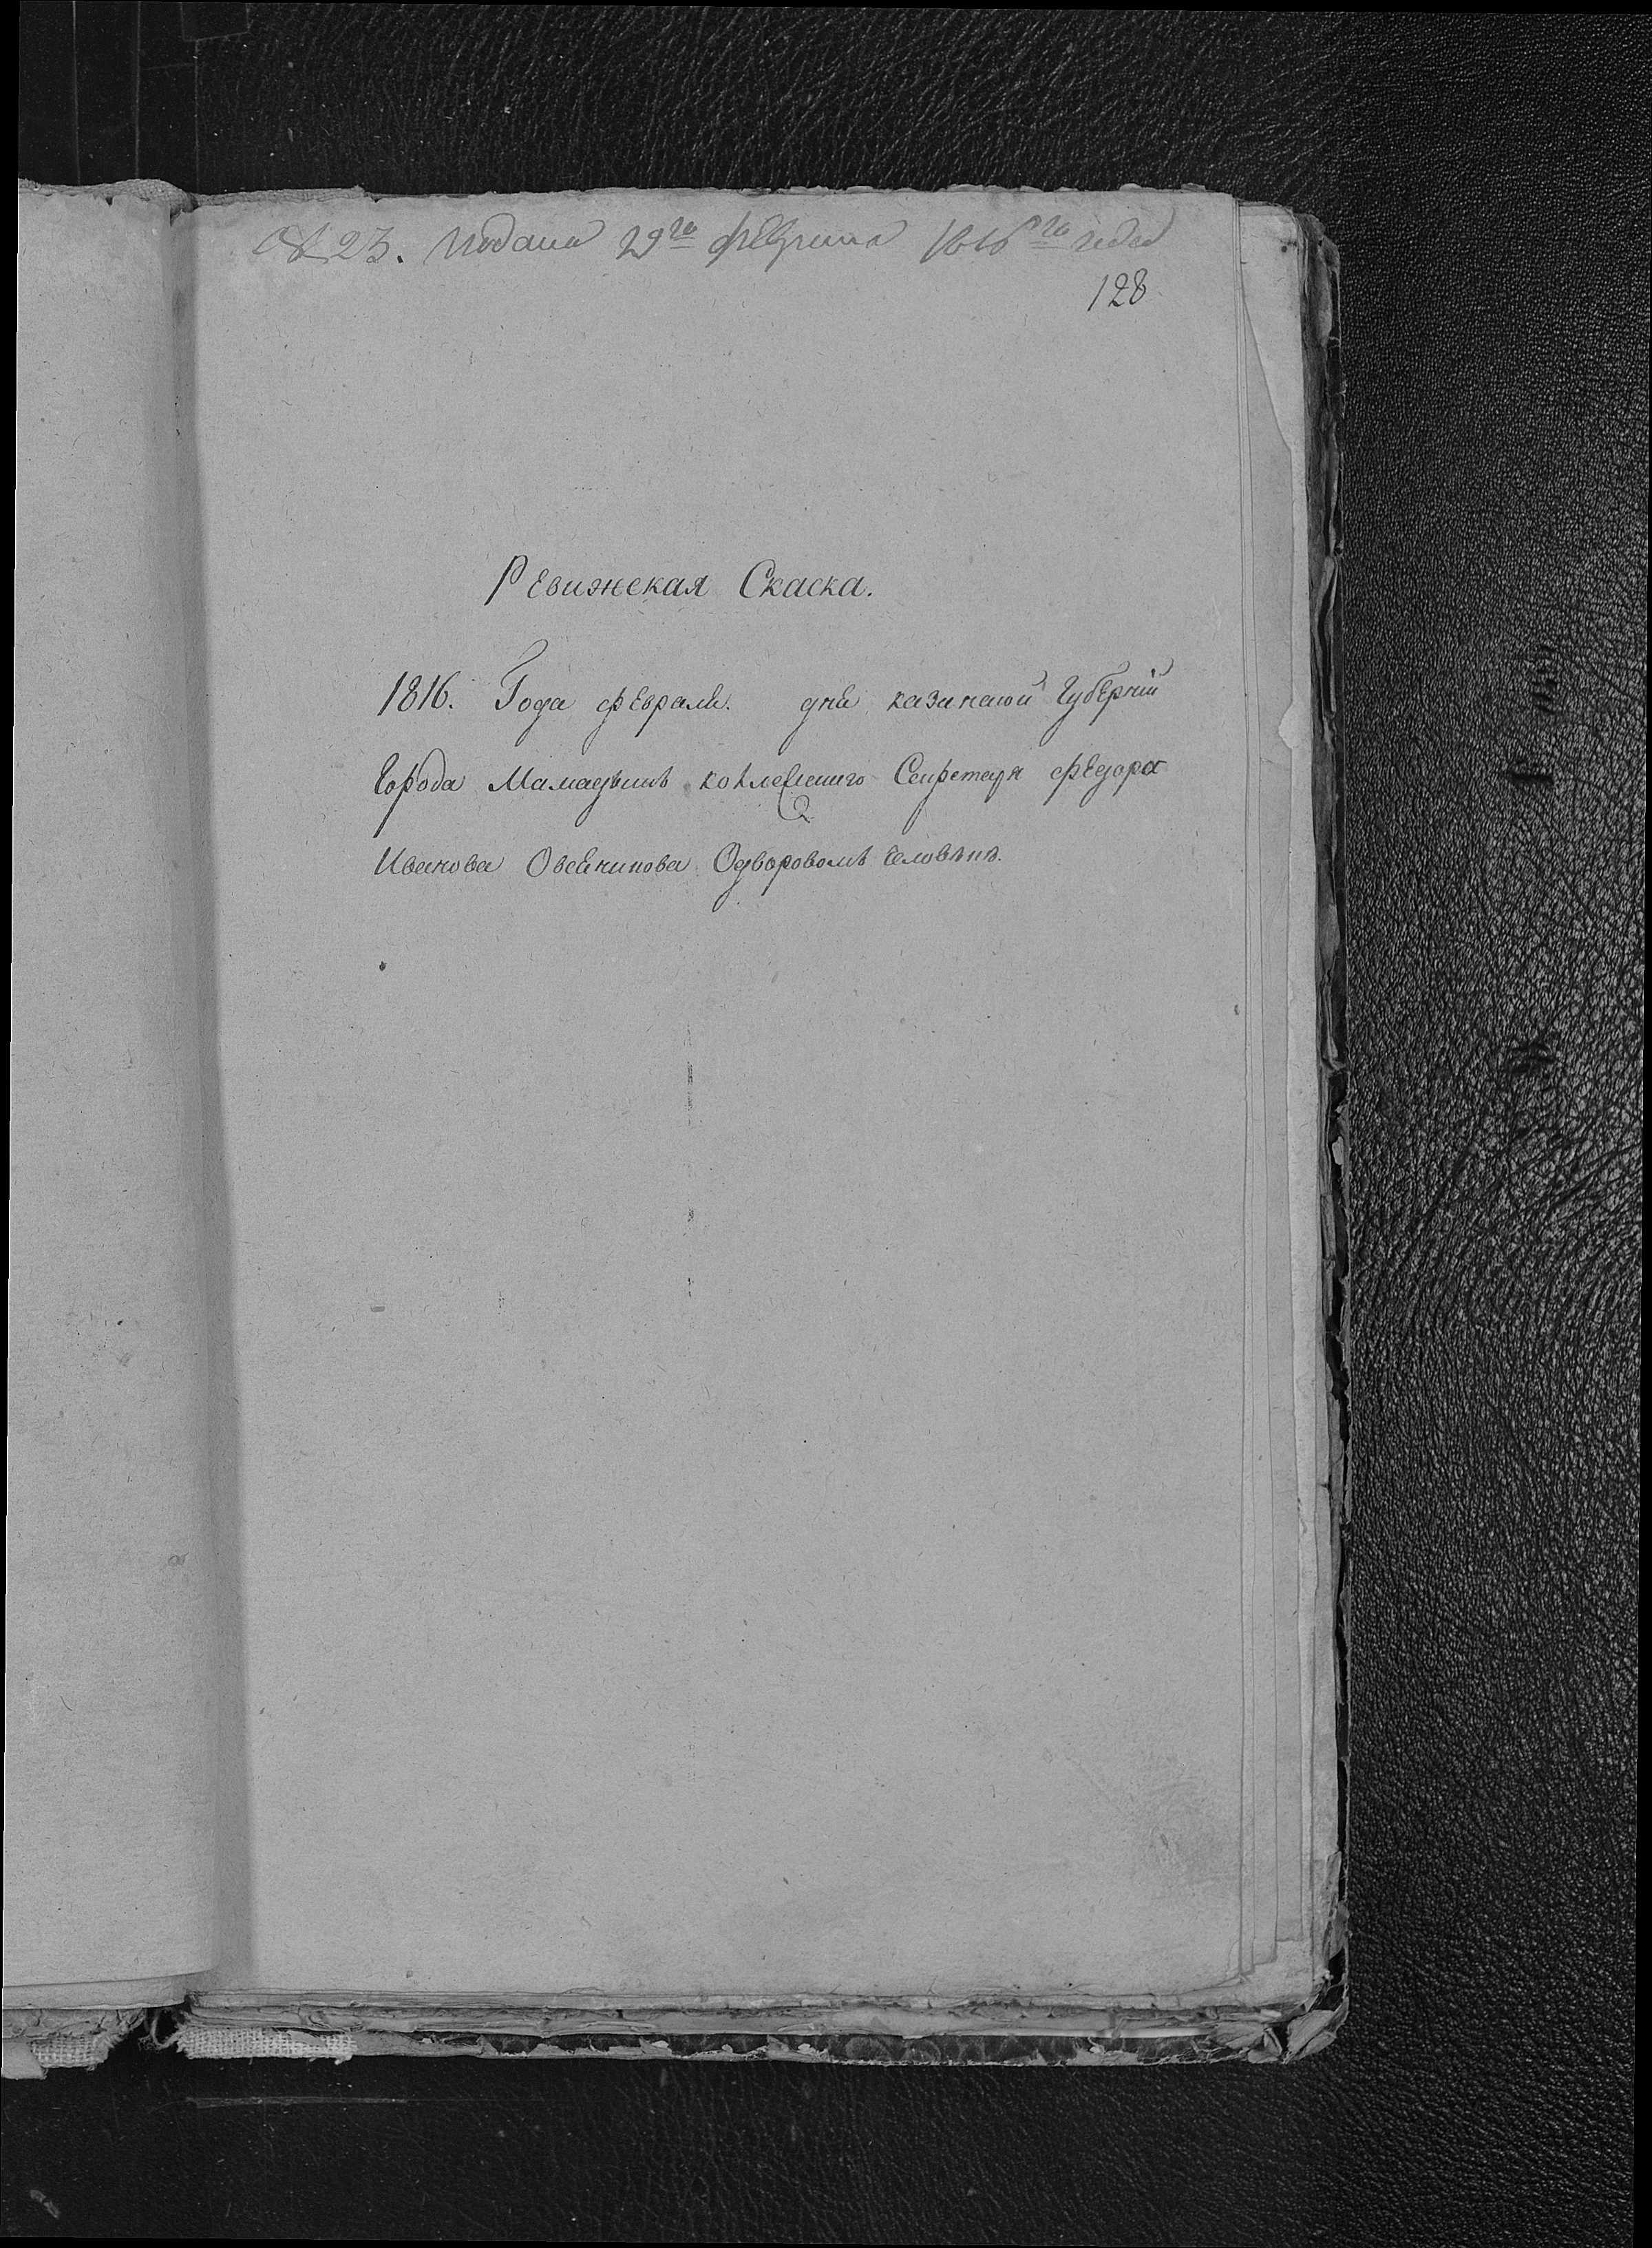 № 23. подана 29го февраля 1816го года
128
Ревижская Скаска.
1816. Года февраля. дня казанской Губернiи
Города Мамадыша коллежскаго Секретаря федора
Иванова Овсеникова Одворовомъ Человѣкѣ.